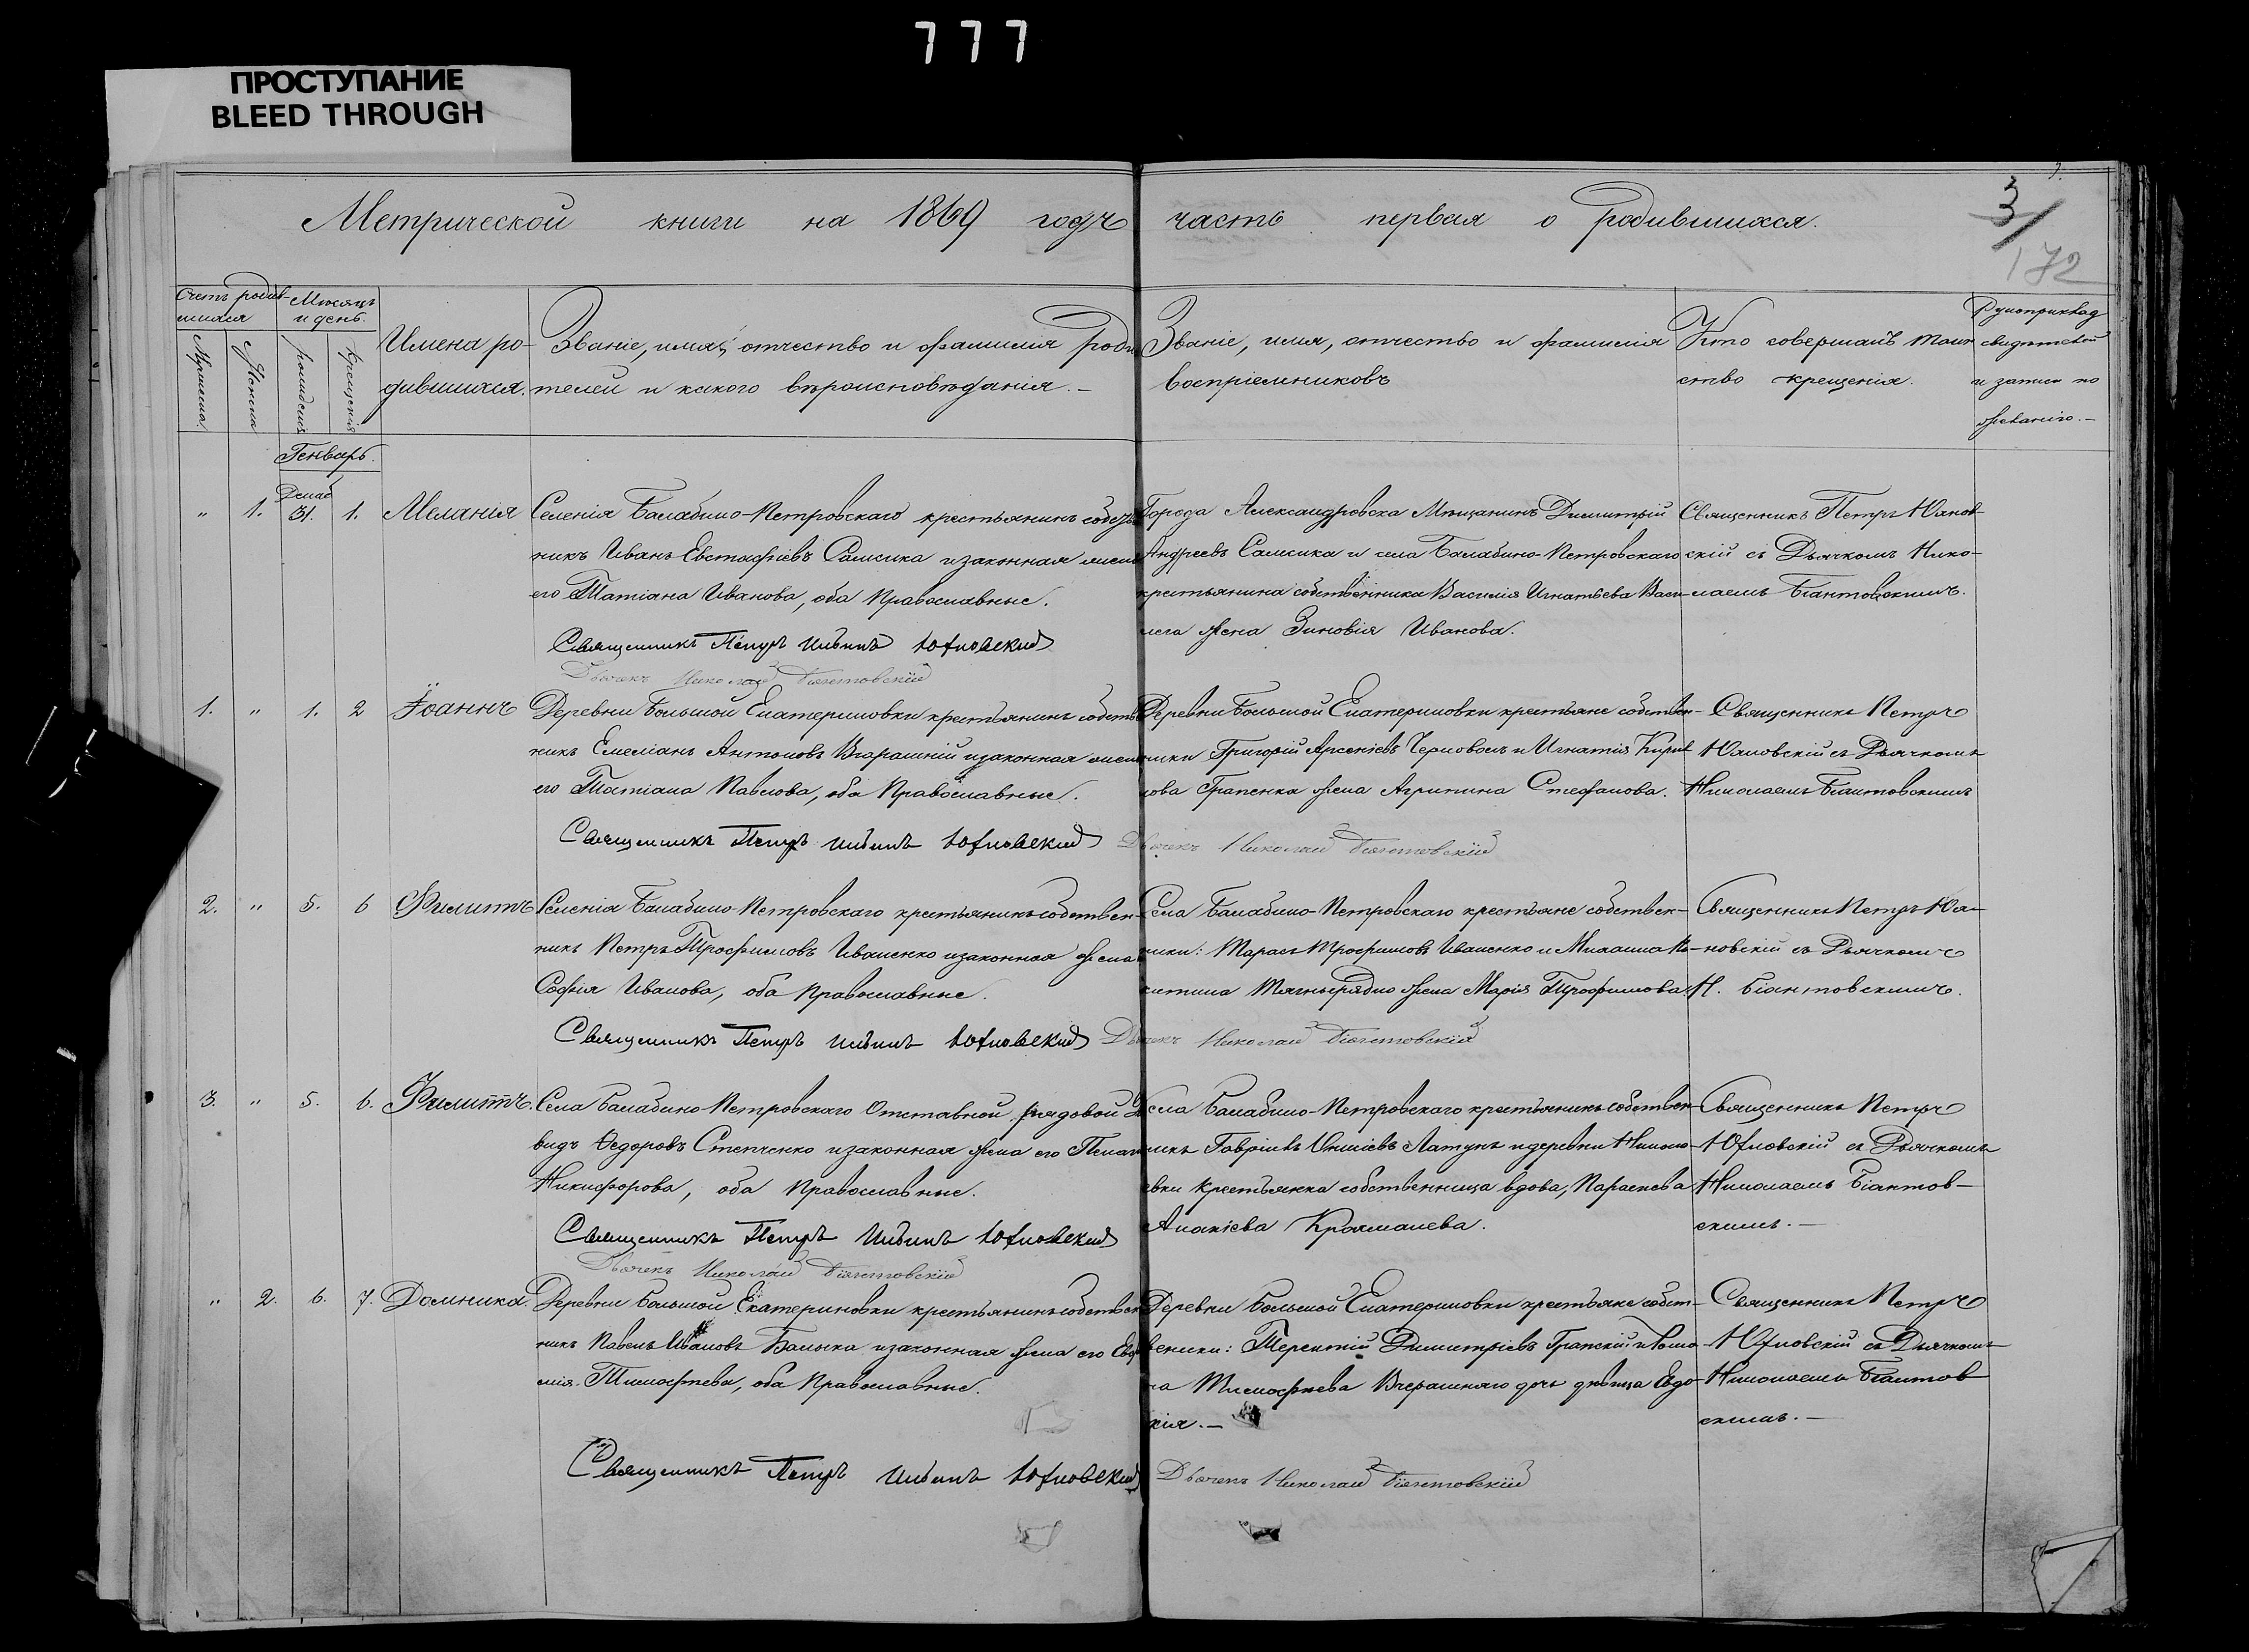 777
ПРОСТУПАНИЕ
BLEED THROUGH
Метрической книги на 1869 годъ часть первая о родившихся.
3
172
Счетъ родив-
шихся
Мѣсяцъ
и день.
Мужеска.
Женска
рожденія
Крещенія
Имена ро-
дившихся.
Званіе, имя, отчество и фамилія роди
телей и какого вѣроисповѣданія.-
Званіе, имя, отчество и фамилія
воспріемниковъ
Кто совершалъ таин
ство крещенія.
Рукоприклад
свидѣтелей
и записи по
желанію.-
Генварь.
" 1. Декаб 31. 1. Меланія
Селенія Балабино-Петровскаго крестьянинъ собст
никъ Иванъ Евстафіевъ Самсика и законная жена
его Татіана Иванова, оба Православные.
Священникъ Петръ Юновскій
Дьячекъ Николай
Города Александровска Мѣщанинъ Димитрій
Андреевъ Самсика и села Балабино-Петровскаго
крестьянина собственника Василія Игнатьева
жена Зиновія Иванова.
Священникъ Петръ Юнов-
скій съ Дьячкомъ Нико-
лаемъ Біантовскимъ.
1. " 1. 2 Іоаннъ
Деревни Большой Екатериновки крестьянинъ собствен
никъ Емеліанъ Антоновъ Вчерашній и законная жена
его Татіана Павлова, оба Православные.
Священникъ Петръ Юновскій Дьячекъ Николай
Деревни Большой Екатериновки крестьяне собствен-
ники Григорій Арсеніевъ Черноволъ и Игнатія Кирил
лова Грапенка жена Агрипина Стефанова.
Священникъ Петръ
Юновскій съ Дьячкомъ
Николаемъ Біантовскимъ
2. " 5. 6 Филиппъ
Селенія Балабино-Петровскаго крестьянинъ собствен-
никъ Петръ Трофимовъ Иваненко и законная жена
Софія Иванова, оба Православные.
Священникъ Петръ Юновскій Дьячекъ Николай
Села Балабино-Петровскаго крестьяне собствен-
ники: Тарасъ Трофимовъ Иваненко и Михаила Ни-
китина Тягнырядно жена Марія Трофимова.
Священникъ Петръ Ю-
новскій съ Дьячкомъ
Н. Біантовскимъ.
3. " 5. 6. Филиппъ.
Села Балабино-Петровскаго Отставной рядовой Да
видъ Федоровъ Степченко и законная жена его Пелаг
Никифорова, оба Православные.
Священникъ Петръ Юновскій
Дьячекъ Николай
Села Балабино-Петровскаго крестьянинъ собствен-
никъ Гавріилъ Латунъ и деревни Никола-
евки крестьянка собственница вдова, Параскева
Ананіева
Священникъ Петръ
Юновскій съ Дьячкомъ
Николаемъ Біантов-
скимъ.-
" 2. 6. 7. Домника.
Деревни Большой Екатериновки крестьянинъ собствен
никъ Павелъ Ивановъ Балыка и законная жена его Евд
Тимофѣева, оба Православные.
Священникъ Петръ Юновскій Дьячекъ Николай
Деревни Большой Екатериновки крестьяне собст-
венники: Терентій Димитріевъ Грапскій и
Тимофѣева Вчерашняго дочь дѣвица Евдо-
кія.-
Священникъ Петръ
Юновскій съ Дьячкомъ
Николаемъ Біантов
скимъ.-